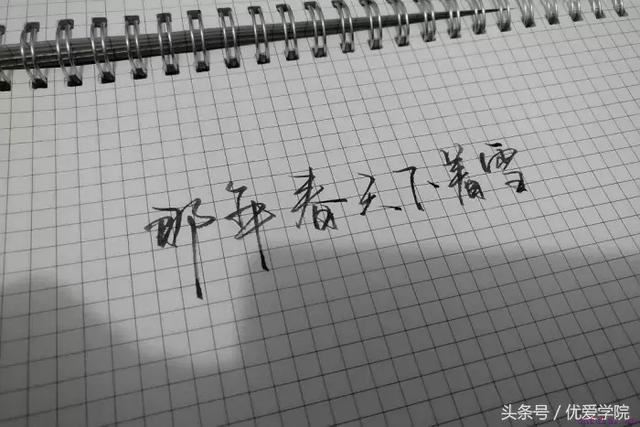 那年春天下着雪
头条号 / 优爱学院